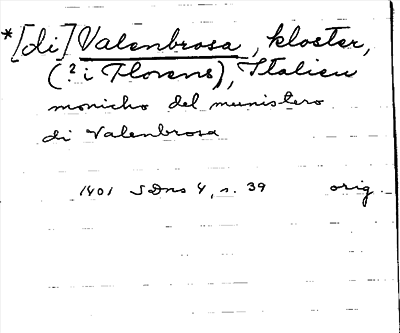 *[di] Valenbrosa, kloster,
(? i Florens), Italien
monicho del munistero
di Valenbrosa
1401 SDns 4, s. 39 orig.